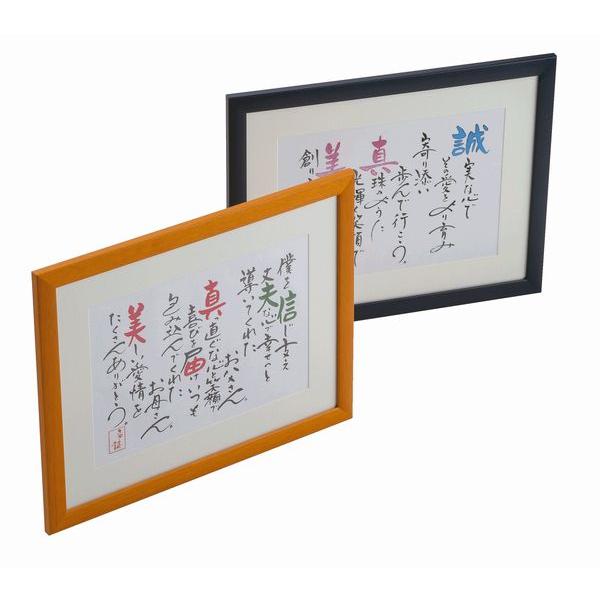 誠実な心で
その愛をより育み
寄り添い
歩んで行こう。
真珠のような
光輝く笑顔で
美
創り
僕を信じ支え
丈夫な心で幸せへと
導いてくれた
お父さん。
真っ直ぐな心と笑顔で
喜びを届けいつも
包み込んでくれた
お母さん。
美しい愛情を
たくさんありがとう。